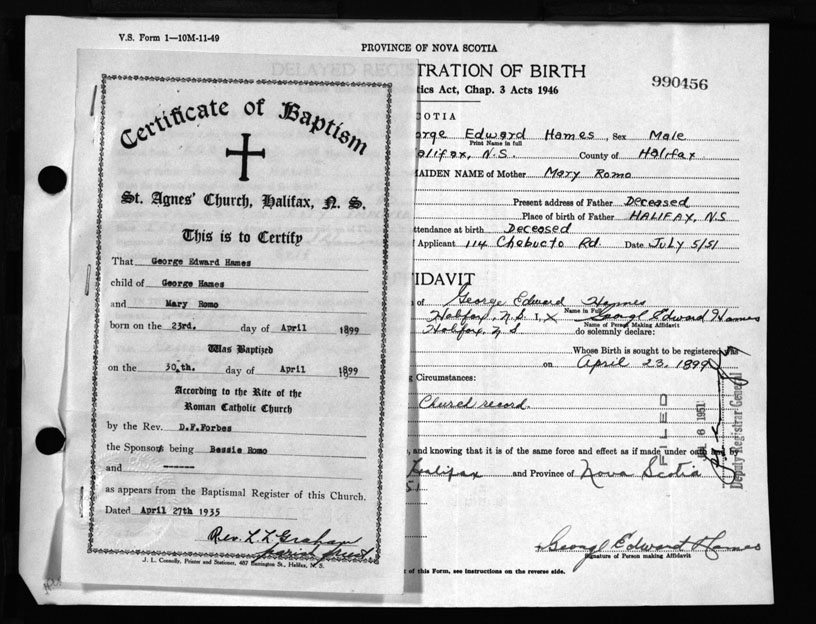 V.S. Form 1—10M-11-49
PROVINCE OF NOVA SCOTIA
DELAYED REGISTRATION OF BIRTH
990456
tics Act, Chap. 3 Acts 1946
Certificate of Baptism
St. Agnes' Church, Halifax, N. S.
This is to Certify
That George Edward Hames
child of George Hames
and Mary Romo
born on the 23rd. day of April 1899
Was Baptized
on the 30.th. day of April 1899
According to the Rite of the
Roman Catholic Church
by the Rev. D.F.Forbes
the Sponsors being Bessie Romo
and ------
as appears from the Baptismal Register of this Church.
Dated April 27th 1935
Rev. L L Graham
Parish Priest
J. L. Connolly, Printer and Stationer, 487 Barrington St., Halifax, N. S.
SCOTIA
orge Edward Hames, Sex Male
Print Name in full
alifax, N.S. County of Halifax
MAIDEN NAME of Mother Mary Romo
Present address of Father Deceased
Place of birth of Father HALIFAX, N.S
ttendance at birth Deceased
Applicant 114 Chebucto Rd. Date July 5/51
FIDAVIT
of George Edward Hames
Name in Full
Halifax, N.S. I, X George Edward Hames
Name of Person Making Affidavit
Halifax, N S do solemnly declare:
Whose Birth is sought to be registered was
on April 23, 1899
g Circumstances:
Church record.
FILED
6 1951
Deputy Registrar General
, and knowing that it is of the same force and effect as if made under oath by
Halifax and Province of Nova Scotia
51
George Edward Hames
Signature of Person making Affidavit
of this Form, see instructions on the reverse side.